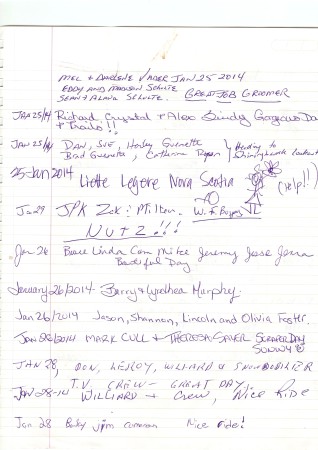 MEL & DARLENE VADER JAN 25 2014
EDDY AND MADISON SCHULTZ
SEAN & ALANA SCHULTZ. GREAT JOB GROOMER
JAN 25/14 Richard, Crystal & Alex Gorgeous Day
& Trails!!
JAN 25/14 DAN, SUE, Harley Guenette Heading to
Brad Guenette, Catherine lookout
25 Jan 2014 Liette Legere Nova Scotia (Help!!)
Jan 29 JPK Zek : W. F. Boyes
NUTZ!!!
Jan 26 Bruce Linda Cam Mike Jeremy Jesse Jenna
Beautiful Day
January 26/2014 Barry & Lyndhea Murphy.
Jan 26/2014 Jason, Shannon, Lincoln and Olivia Foster.
Jan 28/2014 MARK CULL & THERESA SAVER SUPER DAY
SUNNY
JAN 28, DON, LESLEY, WILLIARD & SNOWMOBILER
T.V. CREW - GREAT DAY
JAN 28-14 WILLIARD & Crew, Nice Ride
Jan 28 Baby jim cameron Nice ride!